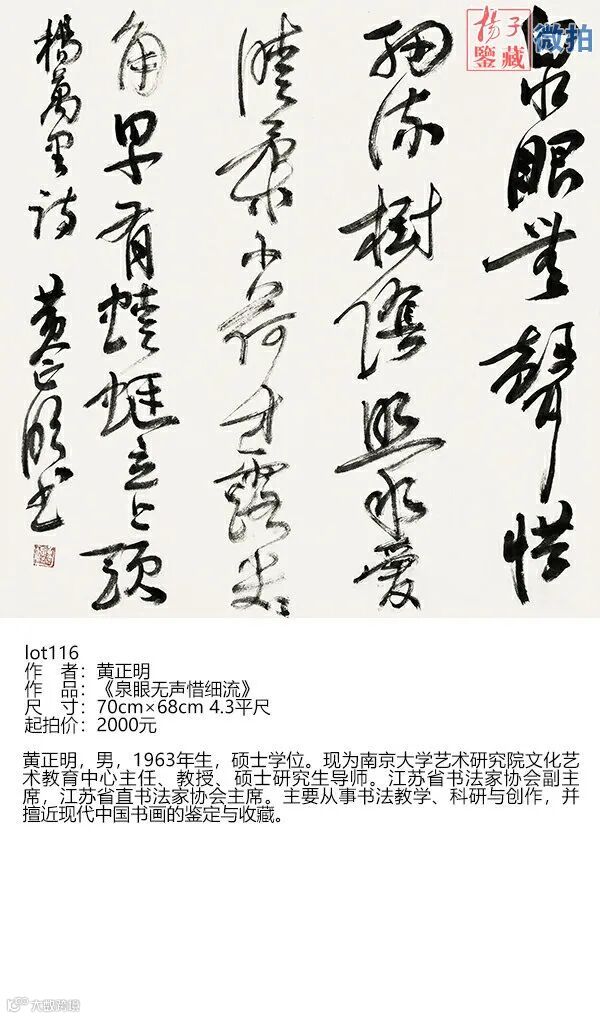 揚子
鑒藏
微拍
泉眼無聲惜
細流樹陰照水愛
晴柔小荷才露尖〻
角早有蜻蜓立上頭
楊萬里詩 黄正明書
lot116
作 者：黄正明
作 品：《泉眼无声惜细流》
尺 寸：70cm×68cm 4.3平尺
起拍价：2000元
黄正明，男，1963年生，硕士学位。现为南京大学艺术研究院文化艺
术教育中心主任、教授、硕士研究生导师。江苏省书法家协会副主
席，江苏省直书法家协会主席。主要从事书法教学、科研与创作，并
擅近现代中国书画的鉴定与收藏。
大数跨境